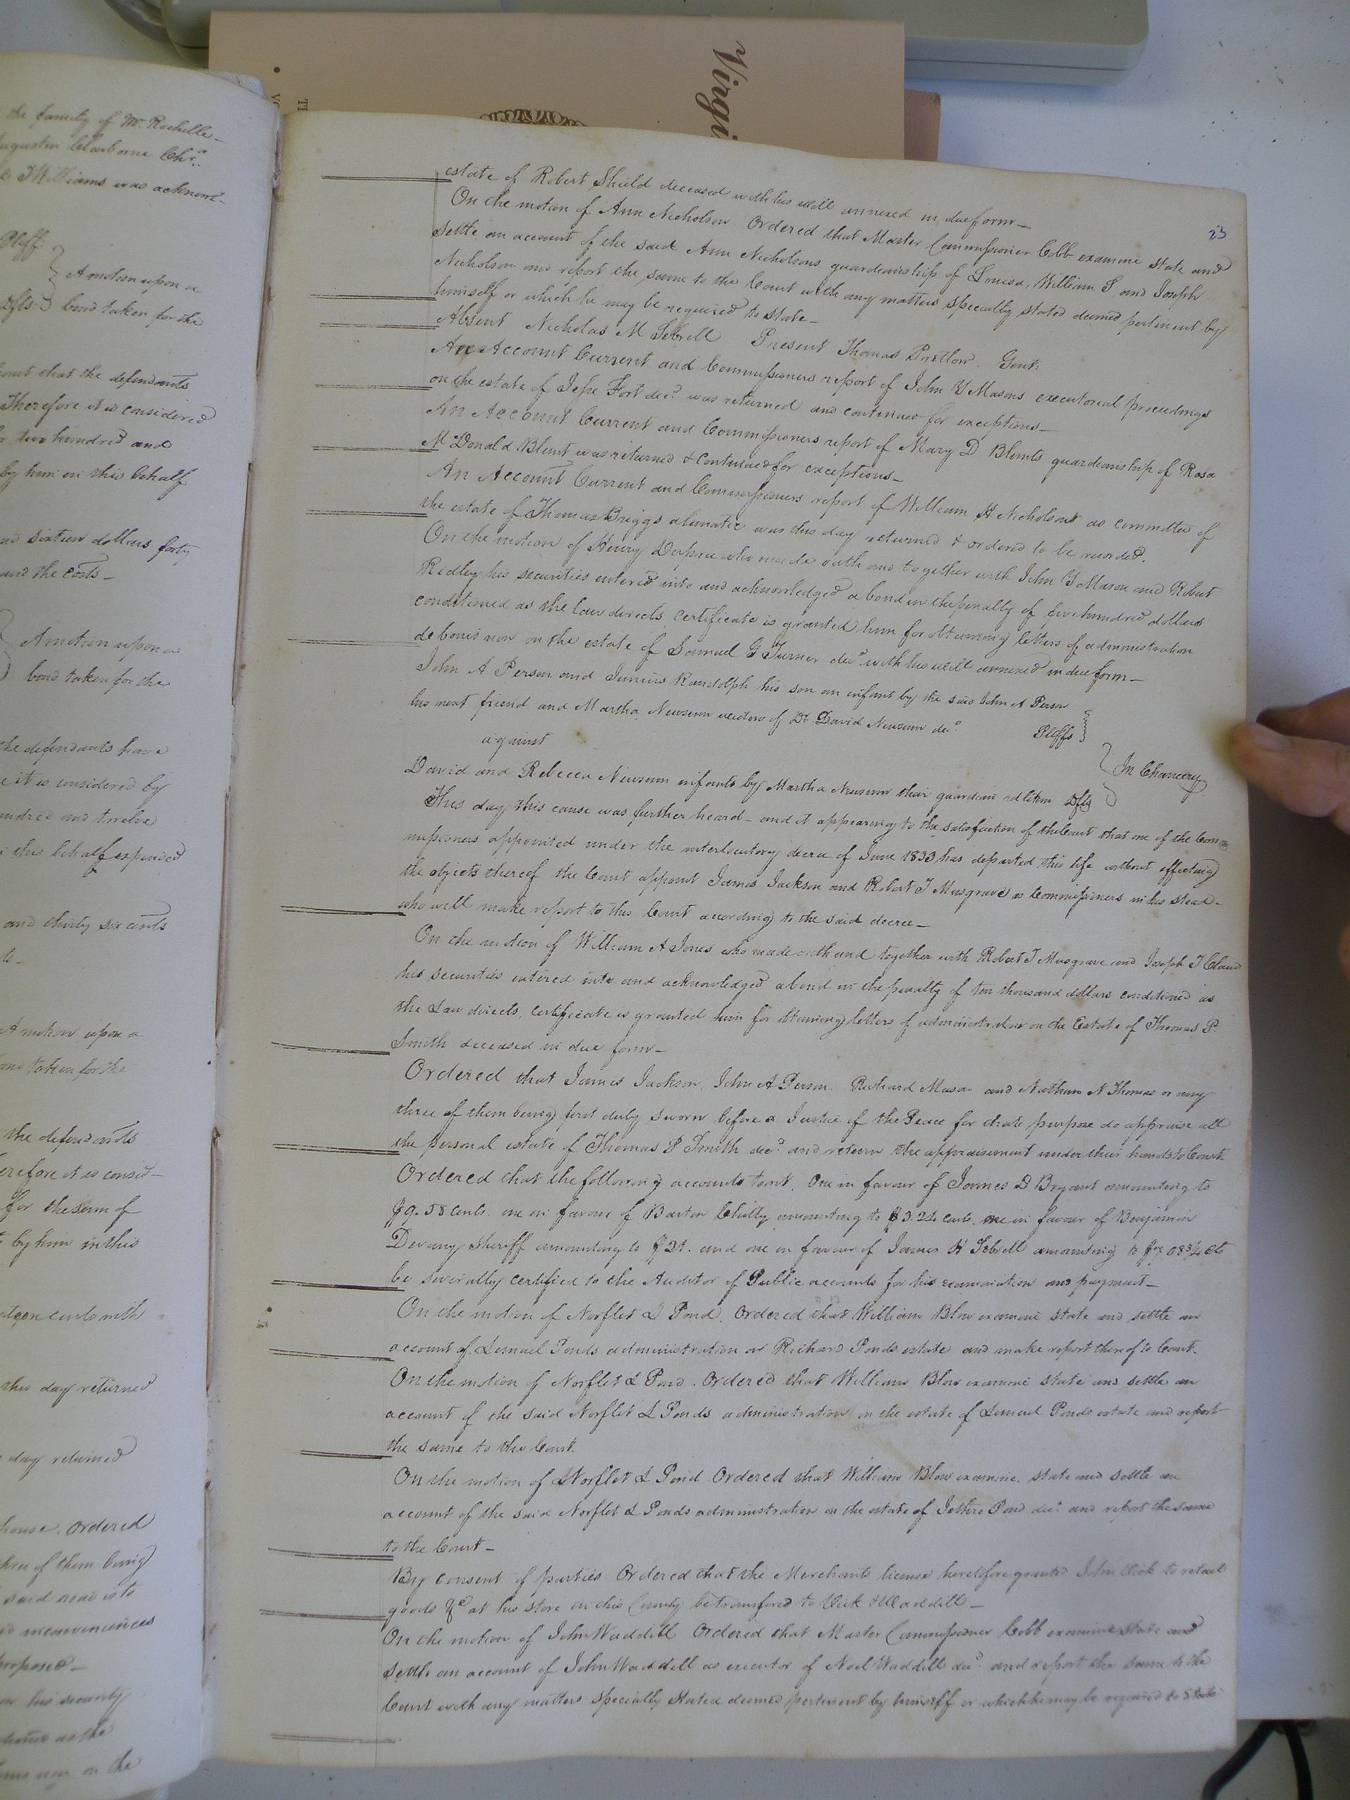 Virgi
the family of Mr. Rochelle
Augustin Claiborne
Williams was acknow-
Pltff
A motion upon a
Dfts bond taken for the
that the defendants
Therefore it is considered
two hundred and
by him in this behalf
sixteen dollars forty
and the costs
A motion upon a
bond taken for the
the defendants have
it is considered by
and twelve
this behalf expended
and thirty six cents
A motion upon a
taken for the
the defendants
it is consid-
for the sum of
by him in this
cents with
this day returned
day returned
house. Ordered
three of them being
said road is to
inconveniences
proposed
his security
as the
on the
23
estate of Robert Shield deceased with his will annexed in due form
On the motion of Ann Nicholson Ordered that Master Commissioner Cobb examine state and
settle an account of the said Ann Nicholsons guardianship of Louisa, William S and Joseph
Nicholson and report the same to the Court with any matters specially stated deemed pertinent by
himself or which he may be required to state
Absent Nicholas M Sebrell Present Thomas Pretlow Gent.
An Account Current and Commissioners report of John Y Masons executorial proceedings
on the estate of Jesse Fort decd was returned and continued for exceptions
An Account Current and Commissioners report of Mary D Blunts guardianship of Rosa
McDonald Blunt was returned & continued for exceptions
An Account Current and Commissioners report of William H Nicholson as committee of
the estate of Thomas Briggs a lunatic was this day returned & ordered to be recorded.
On the motion of Henry Dupree who made oath and together with John Y Mason and Robert
Ridley his securities entered into and acknowledged a bond in the penalty of five hundred dollars
conditioned as the law directs, certificate is granted him for obtaining letters of administration
de bonis non on the estate of Samuel G Turner decd with his will annexed in due form
John A Person and Junius Randolph his son an infant by the said John A Person
his next friend and Martha Newsum of Dr David Newsum decd Pltffs
against
In Chancery
David and Rebecca Newsum infants by Martha Newsum their guardian ad litem Dfts
This day this cause was further heard and it appearing to the satisfaction of the Court that one of the Com
missioners appointed under the interlocutory decree of June 1833 has departed this life without effecting
the objects thereof the Court appoint James Jackson and Robert T Musgrave as Commissioners in his stead
who will make report to this Court according to the said decree
On the motion of William A Jones who made oath and together with Robert T Musgrave and Joseph T Claud
his securities entered into and acknowledged a bond in the penalty of ten thousand dollars conditioned as
the Law directs, certificate is granted him for obtaining letters of administration on the Estate of Thomas P
Smith deceased in due form
Ordered that James Jackson, John A Person, Richard Mason and Nathan N Thomas or any
three of them being first duly sworn before a Justice of the Peace for that purpose do appraise all
the personal estate of Thomas P Smith decd and return the appraisement under their hands to Court
Ordered that the following accounts towit, One in favour of James D Bryant amounting to
$9.58 cents. one in favour of Barton Chitty amounting to $3.24 cents, one in favour of Benjamin
Devany Sheriff amounting to $21. and one in favour of James H Sebrell amounting to
be severally certified to the Auditor of Public accounts for his examination and payment
On the motion of Norflet L Pond, Ordered that William Blow examine state and settle an
account of Lemuel Ponds administration on Richard Ponds estate and make report thereof to Court.
On the motion of Norflet L Pond. Ordered that William Blow examine state and settle an
account of the said Norflet L Ponds administration on the estate of Lemuel Ponds estate and report
the same to the Court.
On the motion of Norflet L Pond Ordered that William Blow examine, state and settle an
account of the said Norflet L Ponds administration on the estate of Jethro Pond decd and report the same
to the Court
By consent of parties Ordered that the Merchants license heretofore granted John Vick to retail
goods &c at his store in this County be transfered to Vick & Waddill
On the motion of John Waddill Ordered that Master Commissioner Cobb examine state and
settle an account of John Waddell as executor of Noel Waddill decd and report the same to the
Court with any matters specially stated deemed pertinent by himself or which he may be required to state